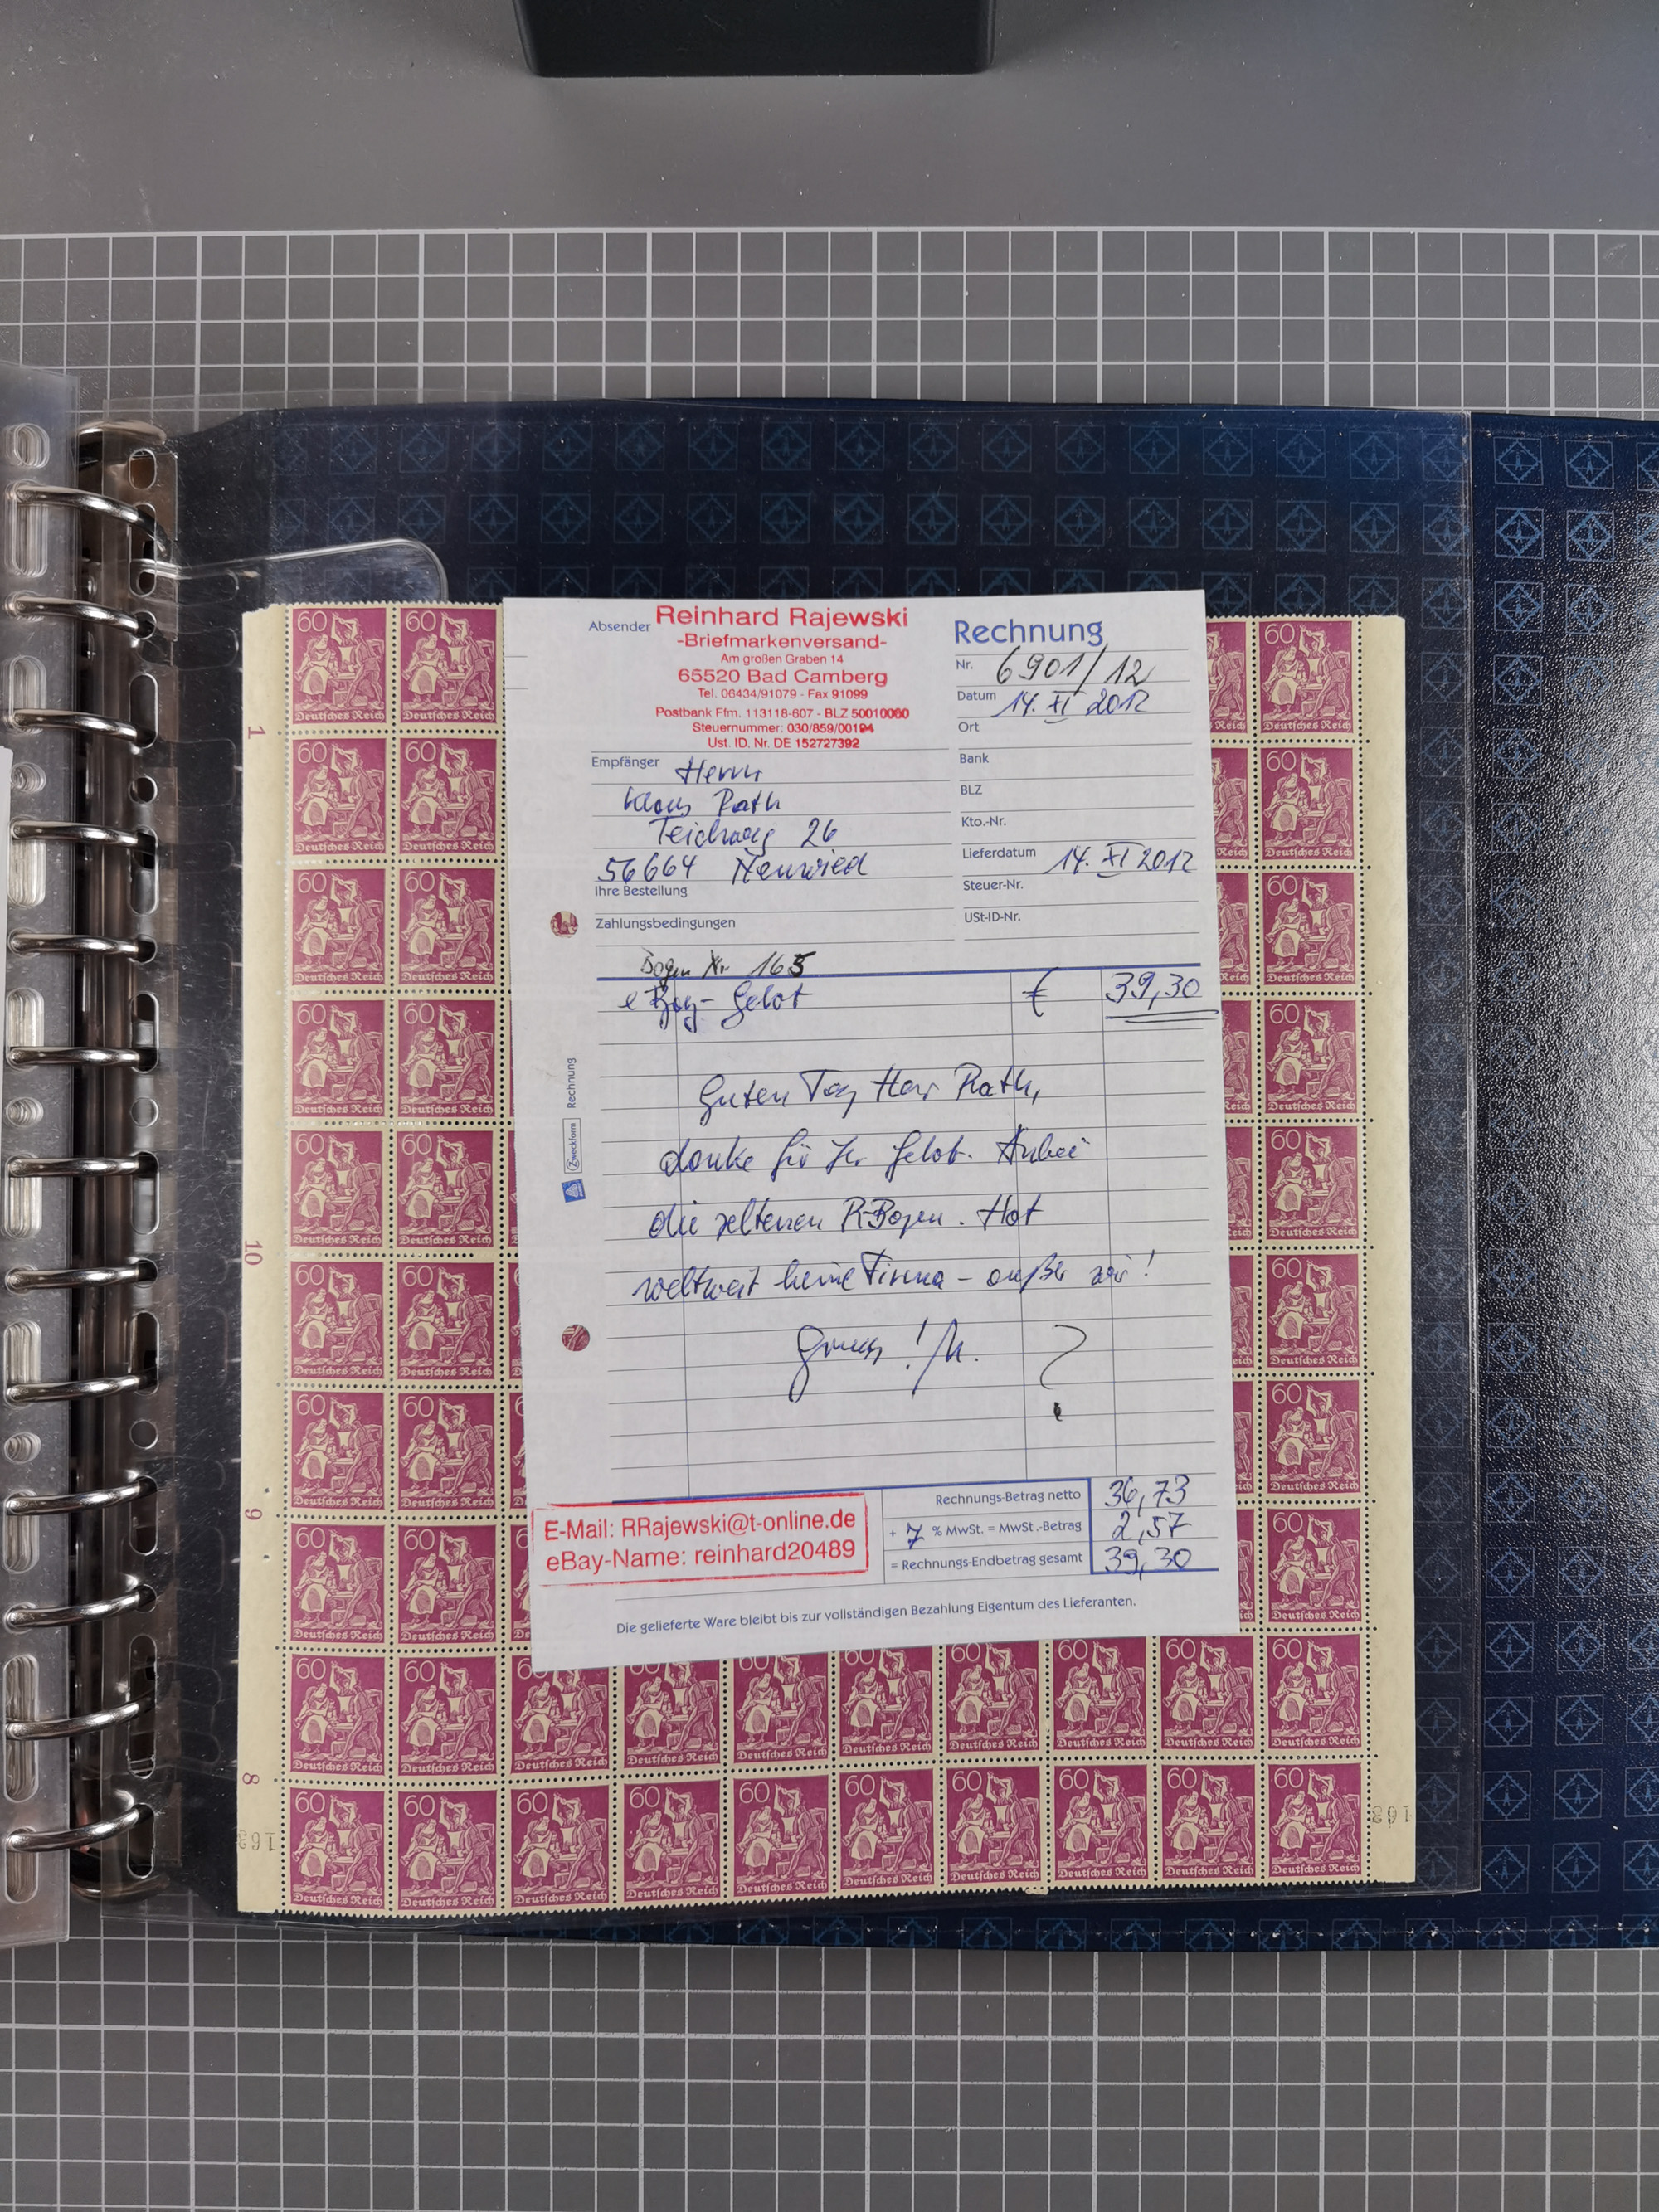 Absender
Reinhard Rajewski
-Briefmarkenversand-
Am großen Graben 14
65520 Bad Camberg
Tel. 06434/91079 - Fax 91099
Postbank Ffm. 113118-607 - BLZ 50010060
Steuernummer: 030/859/00194
Ust. ID. Nr. DE 152727392
Rechnung
Nr. 6901/12
Datum 14. XI 2012
Ort
Bank
BLZ
Kto.-Nr.
Lieferdatum 14. XI 2012
Steuer-Nr.
USt-ID-Nr.
Empfänger Herrn
Klaus Rath
Teichweg 26
56664 Neuwied
Ihre Bestellung
Zahlungsbedingungen
Bogen Nr 165
eBay-Gebot € 39,30
Guten Tag Herr Rath,
danke für Ihr Gebot. Anbei
die seltenen R-Bogen. Hat
weltweit keine Firma - außer wir!
Gruss !
?
Zweckform Rechnung
E-Mail: RRajewski@t-online.de
eBay-Name: reinhard20489
Rechnungs-Betrag netto 36,73
+ 7 % MwSt. = MwSt.-Betrag 2,57
= Rechnungs-Endbetrag gesamt 39,30
Die gelieferte Ware bleibt bis zur vollständigen Bezahlung Eigentum des Lieferanten.
60
Deutsches Reich
1
10
9
8
163
163